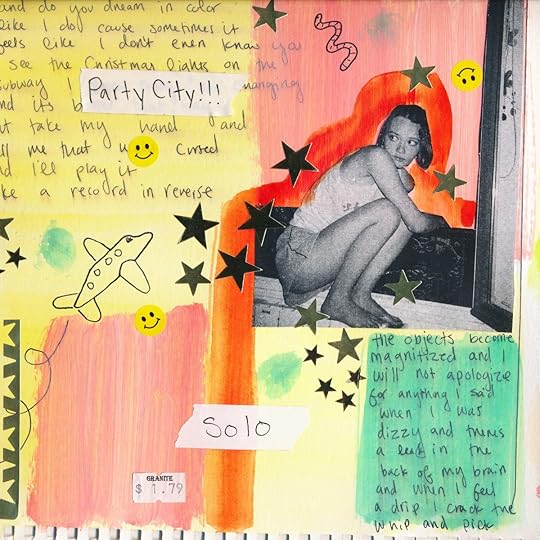 and do you dream in color
like I do cause sometimes it
feels like I don't even know you
I see the Christmas lights on the
subway I hanging
and its b
but take my hand and
tell me that w cursed
and I'll play it
like a record in reverse
Party City!!!
Solo
GRANITE
$ 1.79
the objects become
magnitized and I
will not apologize
for anything I said
when I was
dizzy and theres
a leak in the
back of my brain
and when I feel
a drip I crack the
whip and pick